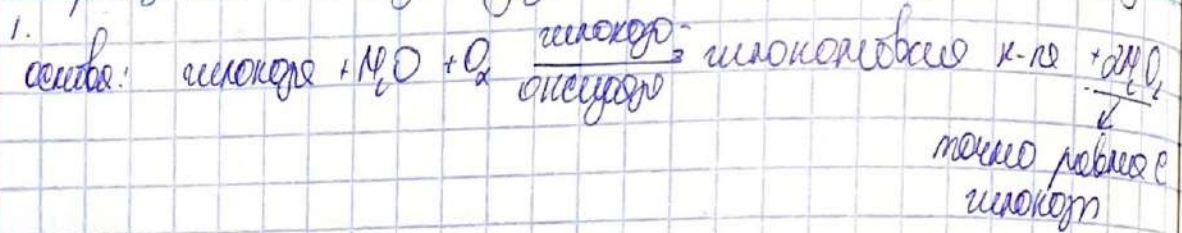 1.
основа: глюкоза + H₂O + O₂ глюкозо-оксидаза глюконовая к-та + 2H₂O₂
точно равна с
глюкоз